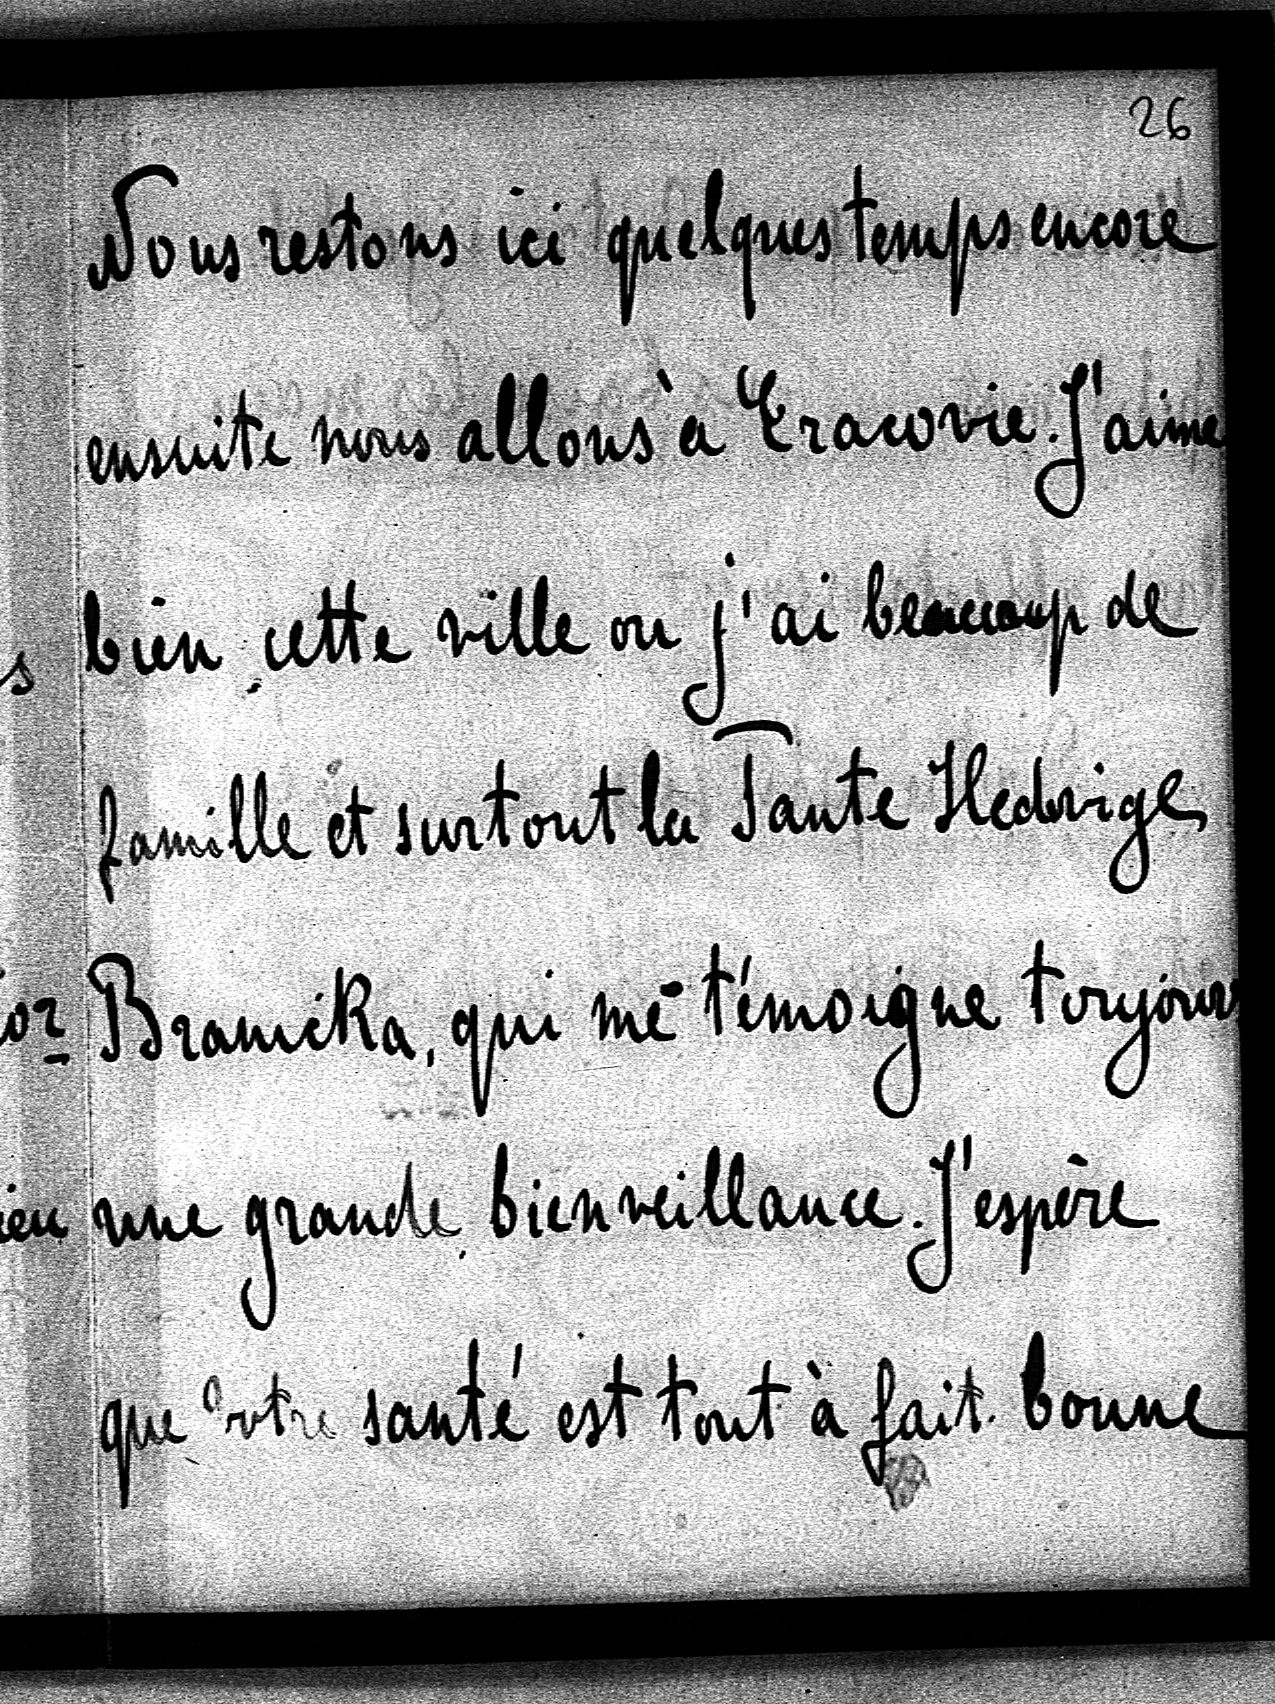 26
Nous restons ici quelques temps encore
ensuite nous allons à Cracovie. J'aime
bien cette ville ou j'ai beaucoup de
famille et surtout la Tante Hedvige,
Branicka, qui me témoigne toujours
une grande bienveillance. J'espère
que Votre santé est tout à fait bonne